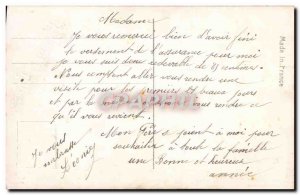 Madame
Je vous remercie bien d'avoir fait
le versement de l'assurance pour moi
Je vous suis donc redevable de 81 centimes
Nous comptant aller vous rendre une
visite pour les premiers beaux jours
et par le vous rendre ce
qu'il vous est dû.
Mon Père joint à moi pour
souhaiter à toute la famille
une Bonne et heureuse
année
Je vous
Made in France